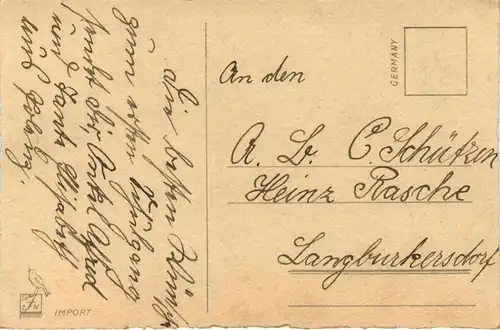 Die besten Wünsche
zum ersten Schulgang
sendet dir, Onkel Alfred
und Tante Elisabeth
und Golang.
An den
A. B. C. Schützen
Heinz Rasche
Langburkersdorf
GERMANY
IMPORT